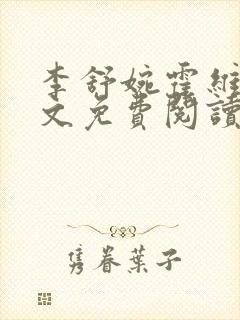 李舒婉霍維
文免費閱讀
雋眷葉子